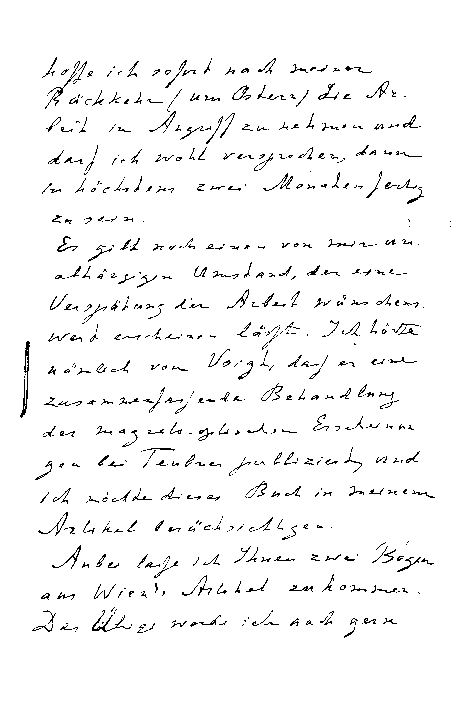 hoffe ich sofort nach meiner
Rückkehr (um Ostern) die Ar-
beit in Angriff zu nehmen und
darf ich wohl versprechen, dann
in höchstens zwei Monaten fertig
zu sein.
Es gibt noch einen von mir un-
abhängigen Umstand, der eine
Verspätung der Arbeit wünschens-
wert erscheinen lässt. Ich hörte
nämlich von Voigt, dass er eine
zusammenfassende Behandlung
der magneto-optischen Erscheinun
gen bei Teubner publiziert, und
ich möchte dieses Buch in meinem
Artikel berücksichtigen.
Anbei lasse ich Ihnen zwei Bogen
aus Wien's Artikel zukommen.
Das Übrige werde ich auch gern